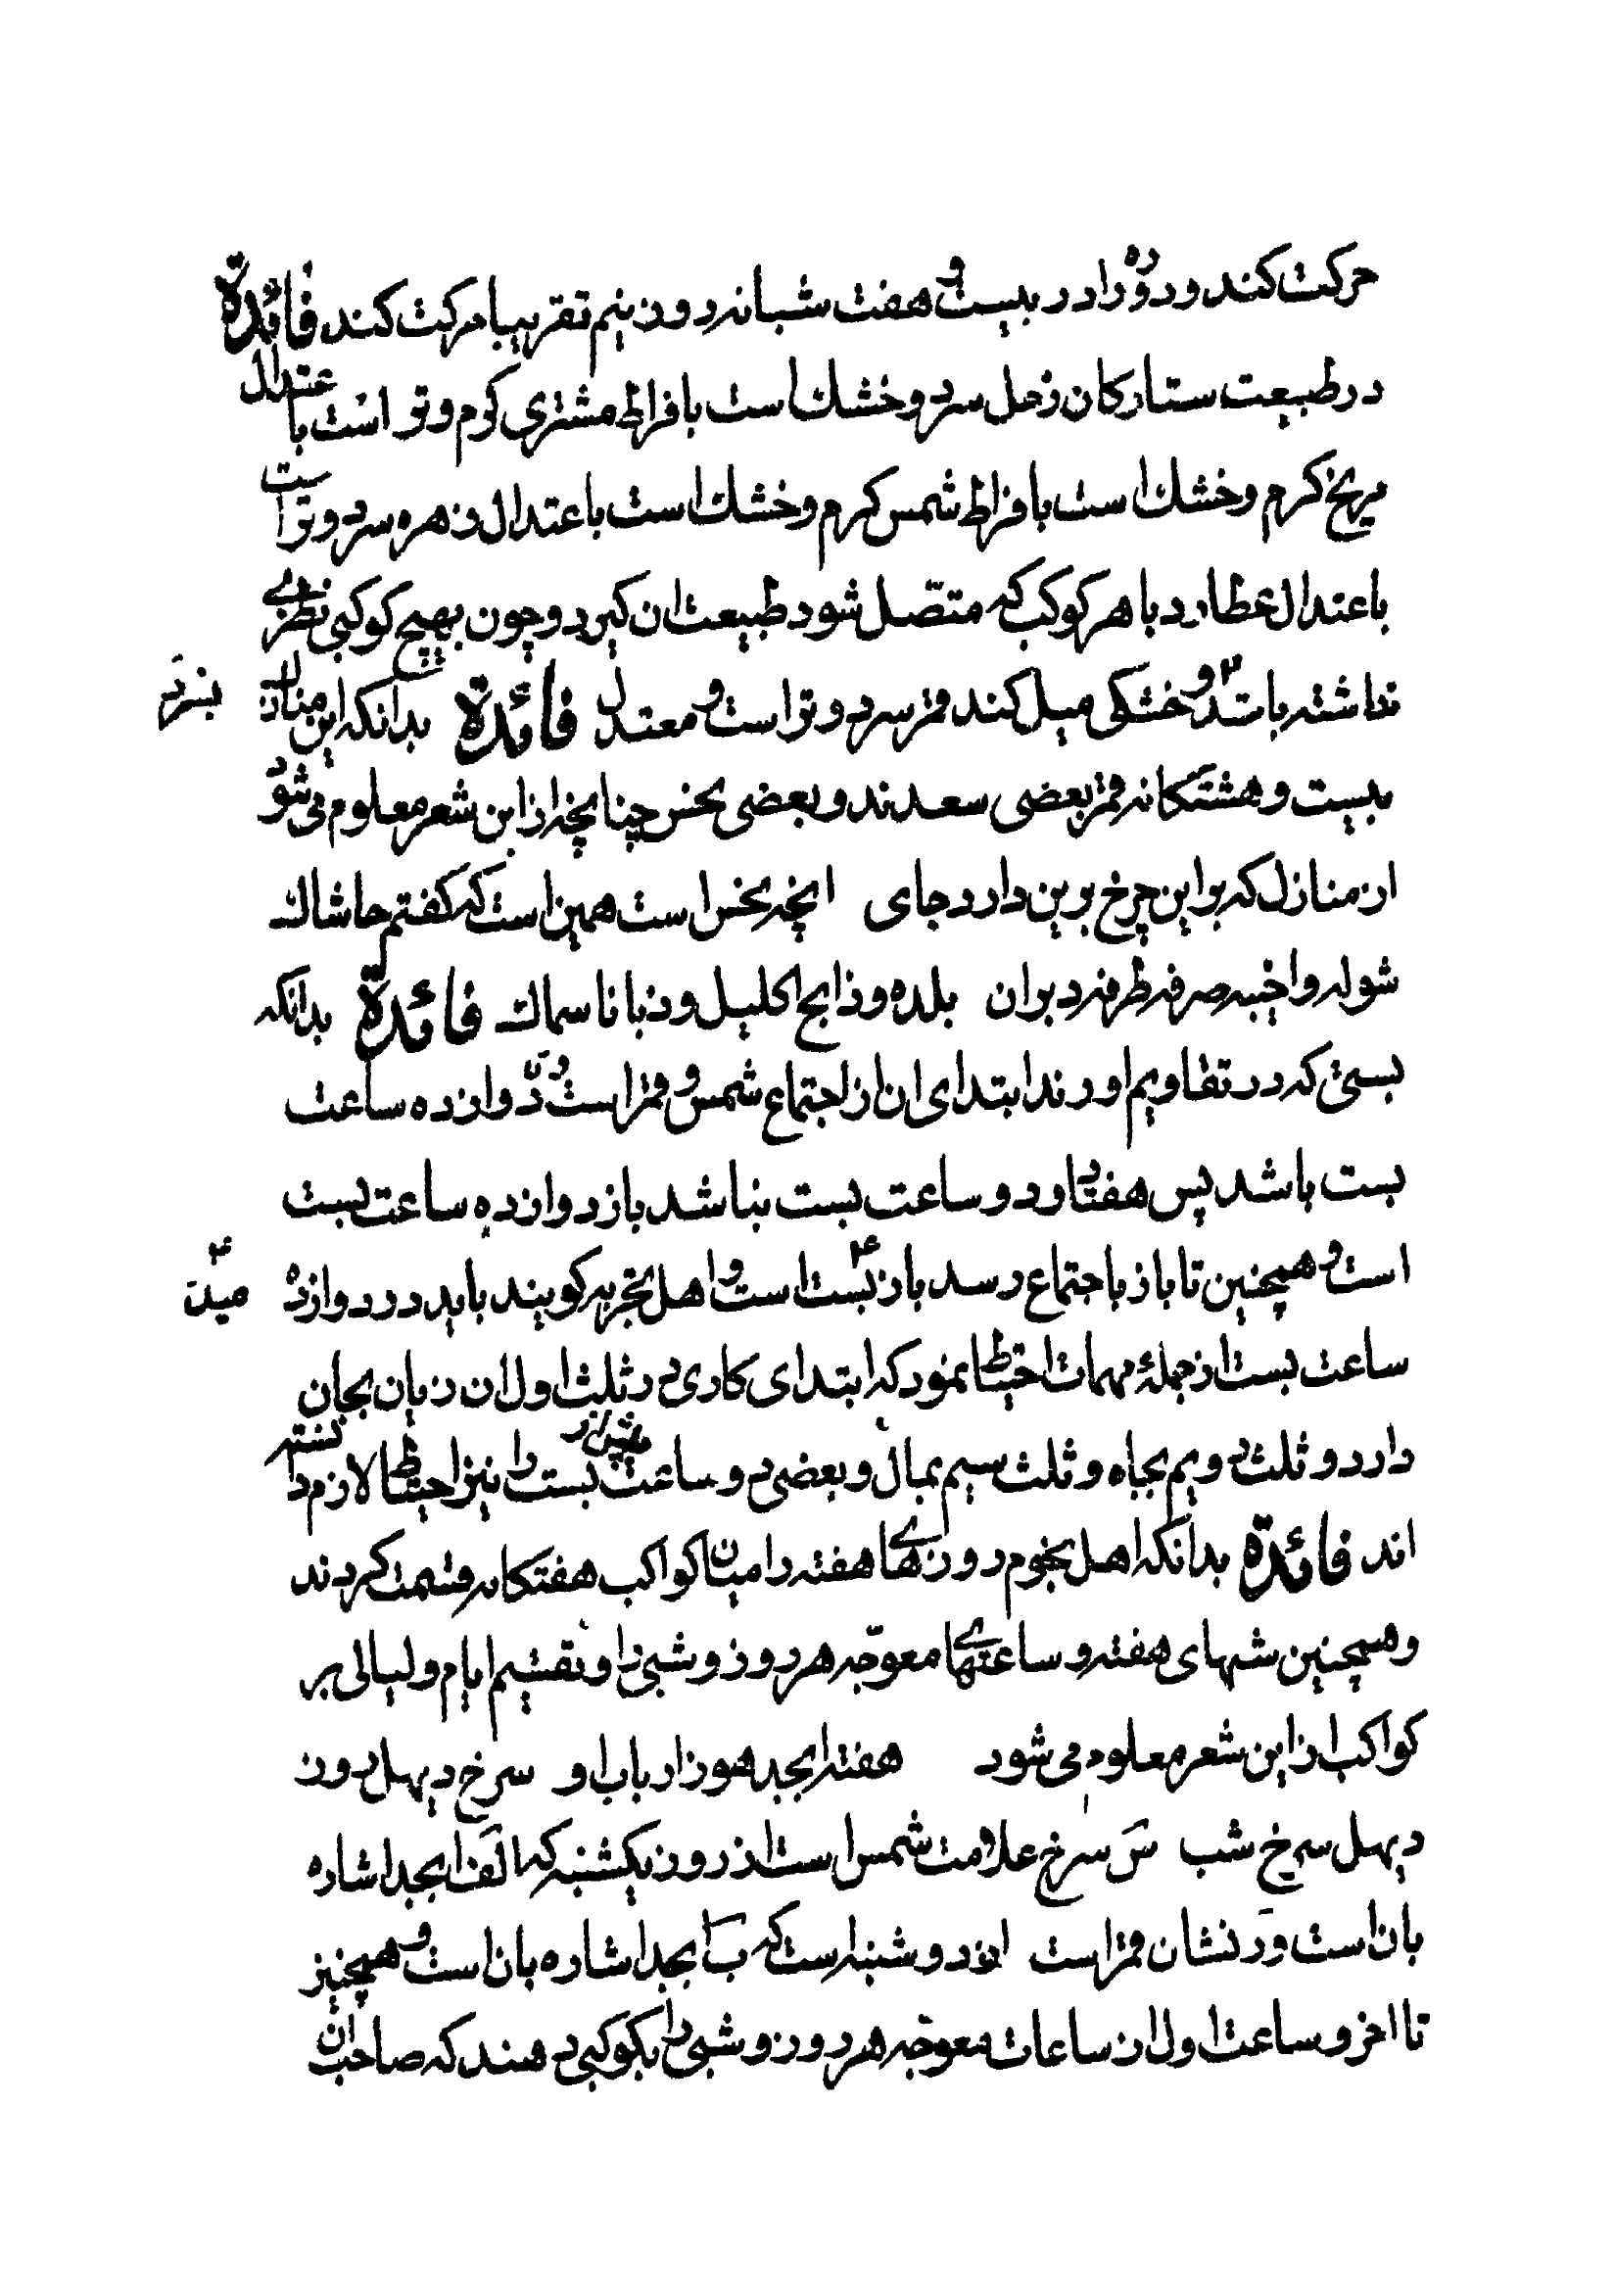 حرکت کند و دوره را در بیست و هفت شبانه روز نیم تقریبا حرکت کند فائدة
در طبیعت ستارکان زحل سرد و خشك است بافراط مشتری کرم و تر است با عتدال
مریخ کرم و خشك است بافراط شمس کرم و خشك است باعتدال زهره سرد و تر است
باعتدال عطارد با هر کوکب که متصّل شود طبیعت ان کیرد و چون بهیچ کوکبی نظرے
نداشته باشد و خشکی میل کند قمر سرد و تر است و معتدل فائدة بدانکه این منازل
بیست و هشتکانه قمر بعضی سعدند و بعضی نحس چنانچه از این شعر معلوم می شود
از منازل که بر این چرخ برین دارد جای انچه نحس است همین است که کفتم حاشاك
شوله و اخبیه صرفه طرفه دبران بلده و ذابح اکلیل و زبانا سماك فائدة بدانکه
بستی که در تقاویم اورند ابتدای ان از اجتماع شمس و قمر است و تا دوازده ساعت
بست باشد پس هفتاد و دو ساعت بست نباشد باز دوازده ساعت بست
است و همچنین تا باز باجتماع رسد باز بست است و اهل تجربه کویند باید در دوازده
ساعت بست از جملهٔ مهمات احتیاط نمود که ابتدای کاری در ثلث اول ان زیان بجان
دارد و ثلث دویم بجاه و ثلث سیم بمال و بعضی دو ساعت پیش از بست را نیز احتیاط لازم دانسته
اند فائدة بدانکه اهل نجوم روزهاے هفته را میان کواکب هفتکانه قسمت کردند
و همچنین شبهای هفته و ساعتهاے معوّجه هر روز و شبی را و تقسیم ایام و لیالی بر
کواکب از این شعر معلوم می شود هفته ابجد هوز ارباب او سرخ دیهل روز
دیهل سرخ شب سَ سرخ علامت شمس است از روز یکشنبه که الف ابجد اشاره
بان است و رَ نشان قمر است از دوشنبه است که ب ابجد اشاره بان است و همچنین
تا اخر و ساعت اول از ساعات معوّجه هر روز و شبی را بکوکبی دهند که صاحب ان